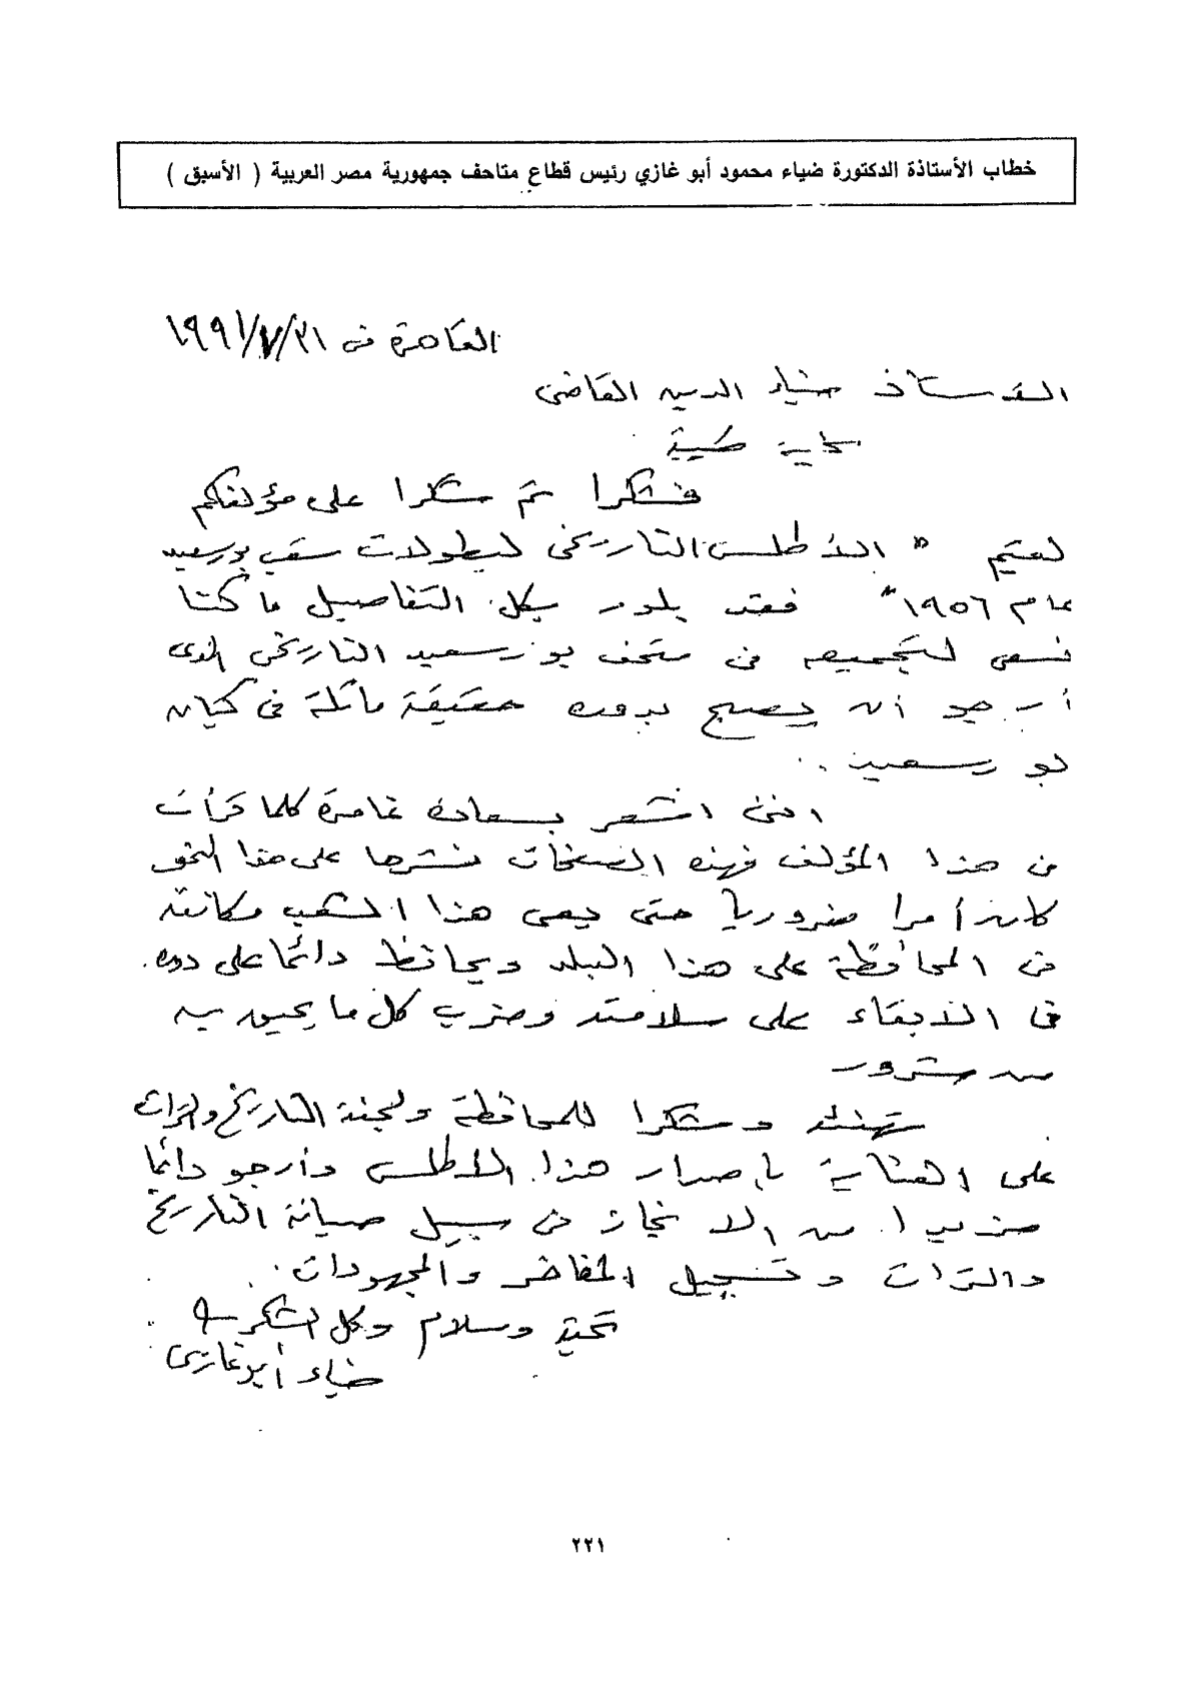 خطاب الأستاذة الدكتورة ضياء محمود أبو غازي رئيس قطاع متاحف جمهورية مصر العربية ( الأسبق )
القاهرة فى ٣١/٧/١٩٩١
الأستاذ ضياء الدين القاضى
تحية طيبة
فشكرا ثم شكرا على مؤلفكم
القيم " الأطلس التاريخى لبطولات شعب بورسعيد
عام ١٩٥٦ " فقد بلور بكل التفاصيل ما كنا
نسعى لتجميعه فى متحف بورسعيد التاريخى الذى
أرجو أن يصبح بدوره حقيقة ماثلة فى كيان
بورسعيد ..
اننى اشعر بسعادة غامرة كلما قرأت
فى هذا المؤلف فهذه الصفحات نشرها على هذا النحو
كان أمرا ضروريا حتى يعى هذا الشعب مكانته
فى المحافظة على هذا البلد ويحافظ دائما على دوره
فى الابقاء على سلامته وضرب كل ما يحيق به
من شرور
تهنئة وشكرا للمحافظة ولجنة التاريخ والتراث
على العناية بإصدار هذا الاطلس وأرجو دائما
مزيدا من الانجاز فى سبيل صيانة التاريخ
والتراث وتسجيل المفاخر والمجهودات .
تحية وسلام وكل الشكر
ضياء أبو غازى
٢٢١